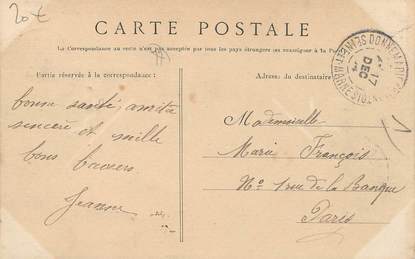 20€
CARTE POSTALE
La Correspondance au verso n'est pas acceptée par tous les pays étrangers (se renseigner à la Poste)
Partie réservée à la correspondance:
Adresse du destinataire
17
DEC
bonne santé, amitié
sincère et mille
bons baisers
Jeanne
Mademoiselle
Marie François
No 1 rue de la Banque
Paris